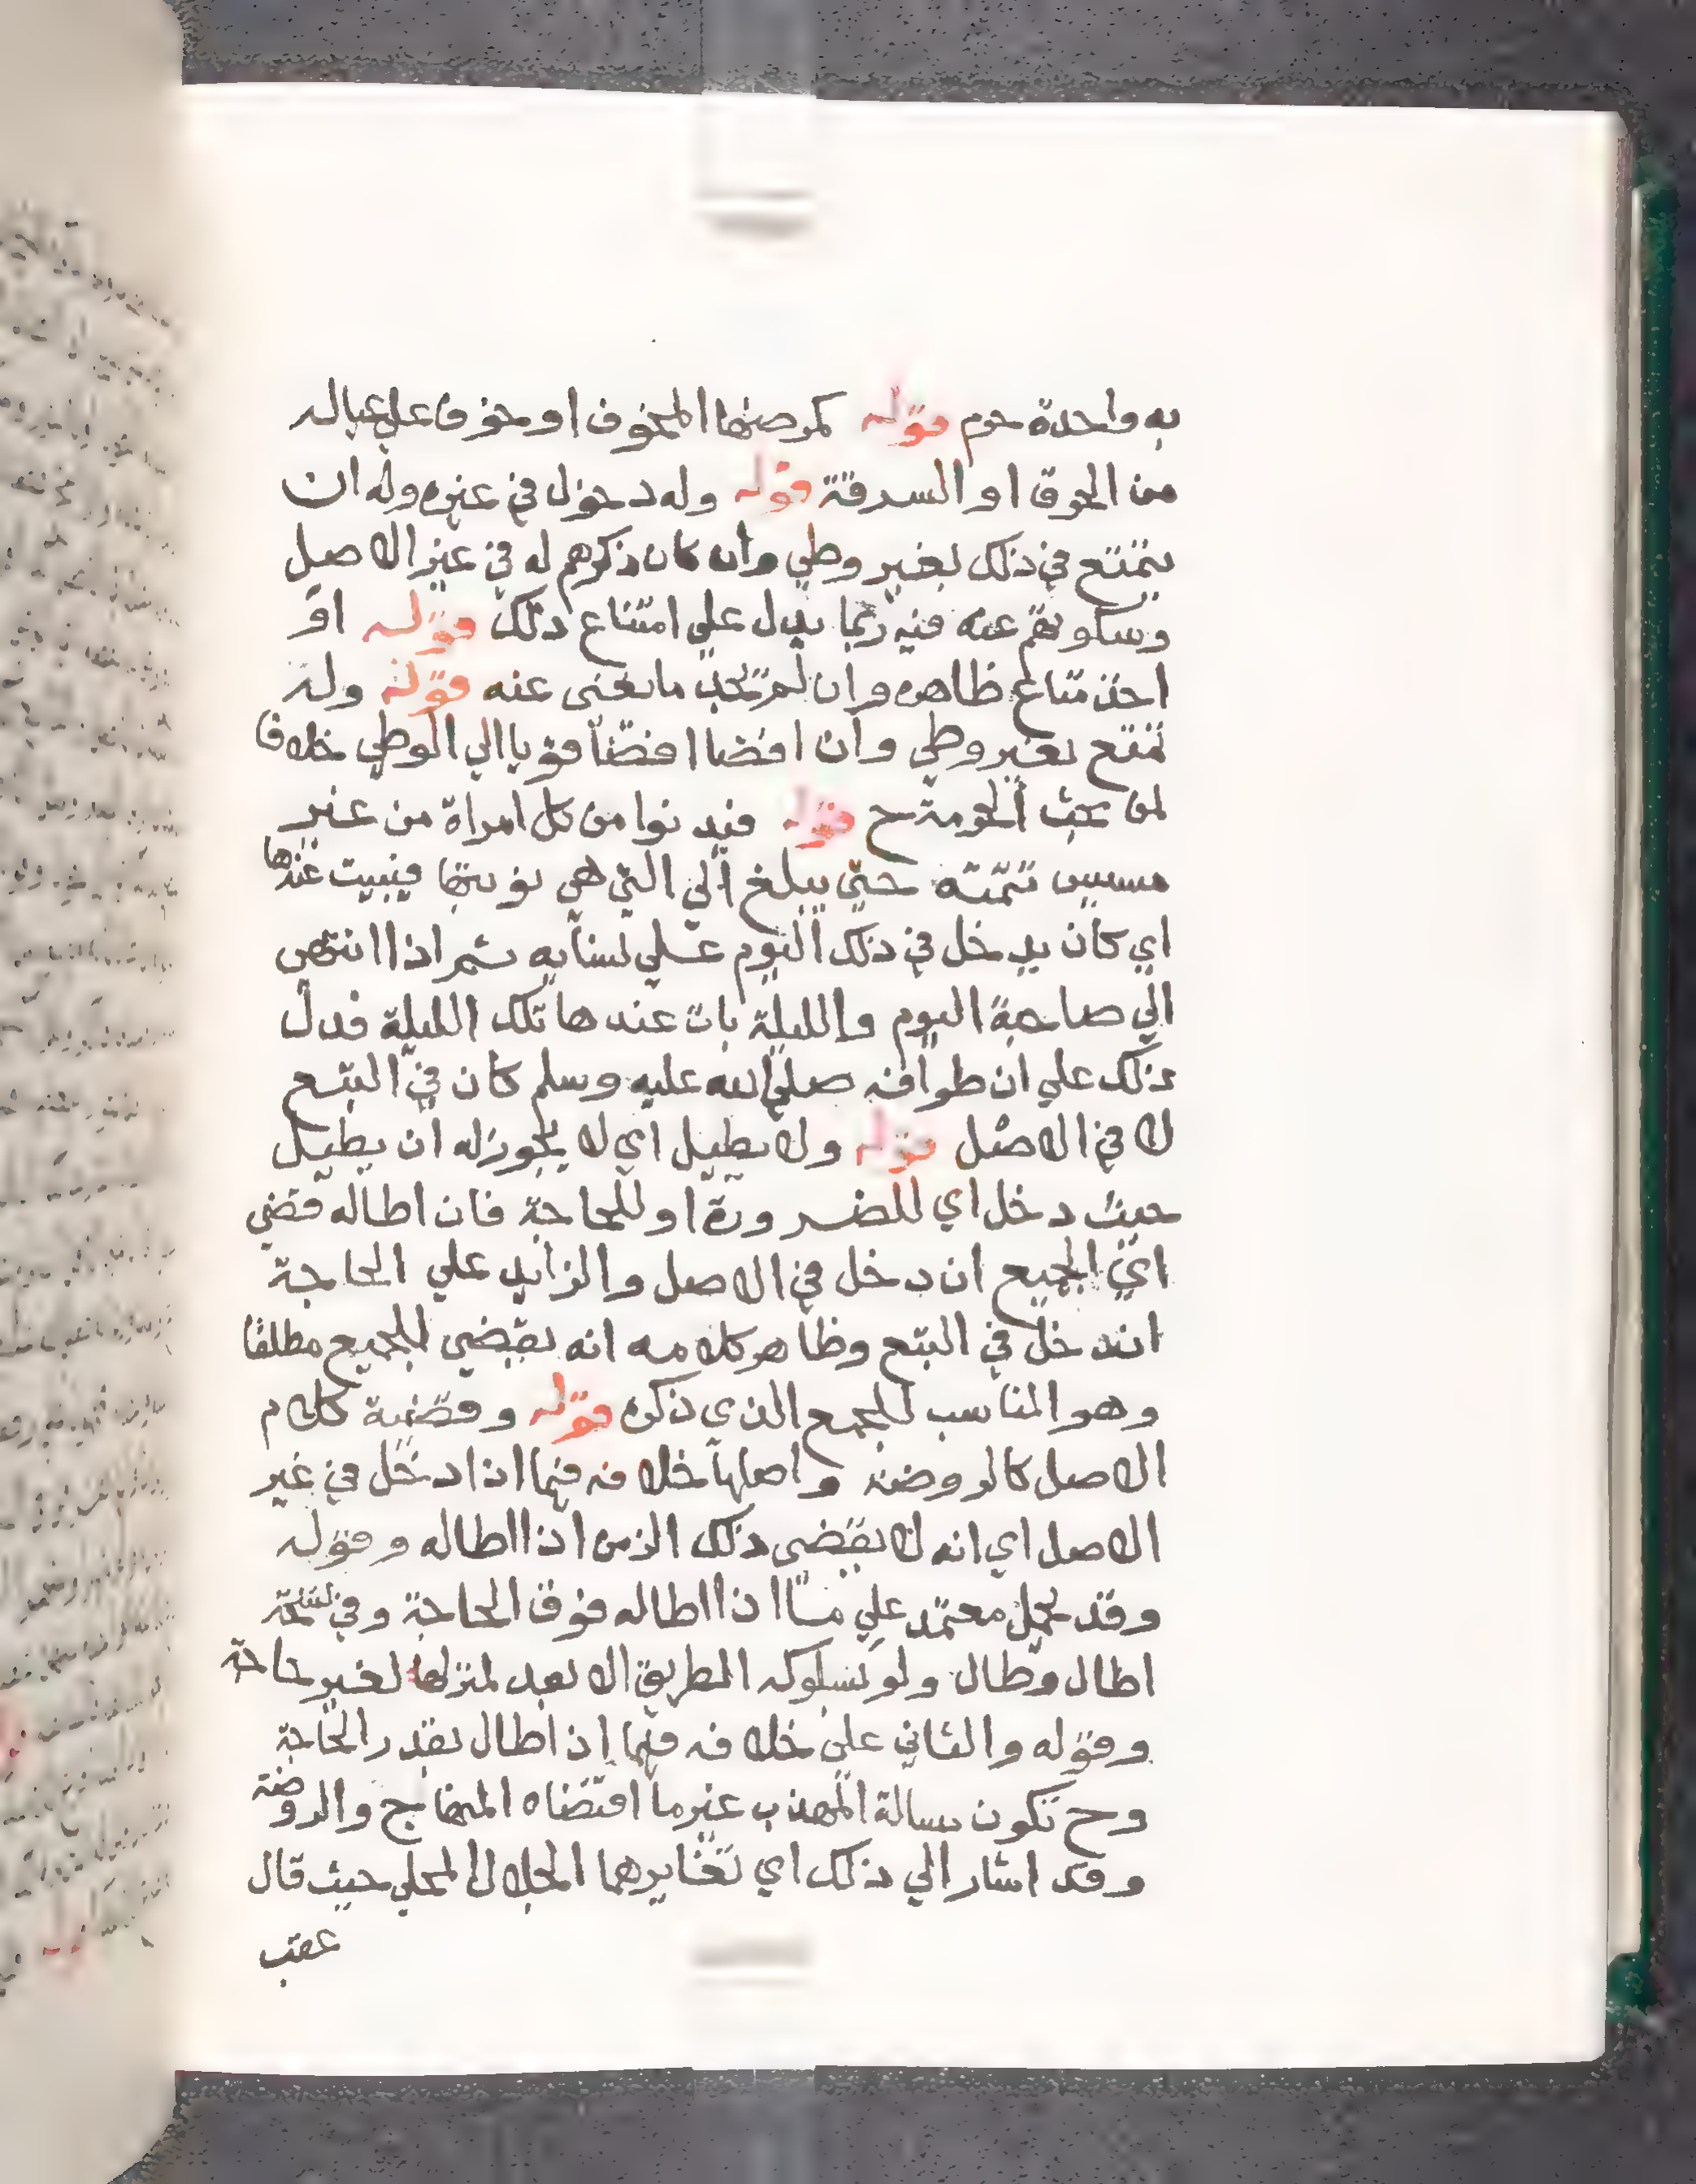 به واحدة حرم قوله كمرضها المخوف او خوف علي عياله
من الحرق او السرقة قوله وله دخول في غيره وله ان
يتمتع في ذلك بغير وطي وان كان ذكرهم له في غير الاصل
وسكوتهم عنه فيه ربما يدل علي امتناع ذلك قوله او
اخذ متاع ظاهره وان لم تجد ما يغني عنه قوله وله
تمتع بغير وطي وان افضا افضاً قويا الي الوطي خلافا
لمن بحث الحرمة ح قوله فيدنوا من كل امراة من غير
مسيس تتمته حتي يبلغ الي التي هي نوبتها فيبيت عندها
اي كان يدخل في ذلك اليوم علي نسايه ثم اذا انتهي
الي صاحبة اليوم والليلة بات عندها تلك الليلة فدل
ذلك علي ان طوافه صلي الله عليه وسلم كان في التبع
لا في الاصل قوله ولا يطيل اي لا يجوز له ان يطيل
حيث دخل اي للضرورة او للحاجة فان اطاله قضي
اي الجميع ان دخل في الاصل والزايد علي الحاجة
ان دخل في التبع وظاهر كلامه انه يقضي الجميع مطلقا
وهو المناسب للجمع الذي ذكره قوله وقضية كلام
الاصل كالروضة واصلها خلافه فيما اذا دخل في غير
الاصل اي انه لا يقضي ذلك الزمن اذا اطاله وقوله
وقد يحمل معتمد علي ما اذا اطاله فوق الحاجة وفي نسخة
اطال وطال ولو بسلوكه الطريق الابعد لمنزلها لغير حاجة
وقوله والثاني علي خلافه فيما اذا اطال بقدر الحاجة
وح تكون مسالة المهذب غير ما اقتضاه المنهاج والروضة
وقد اشار الي ذلك اي تغايرهما الجلال المحلي حيث قال
عقب